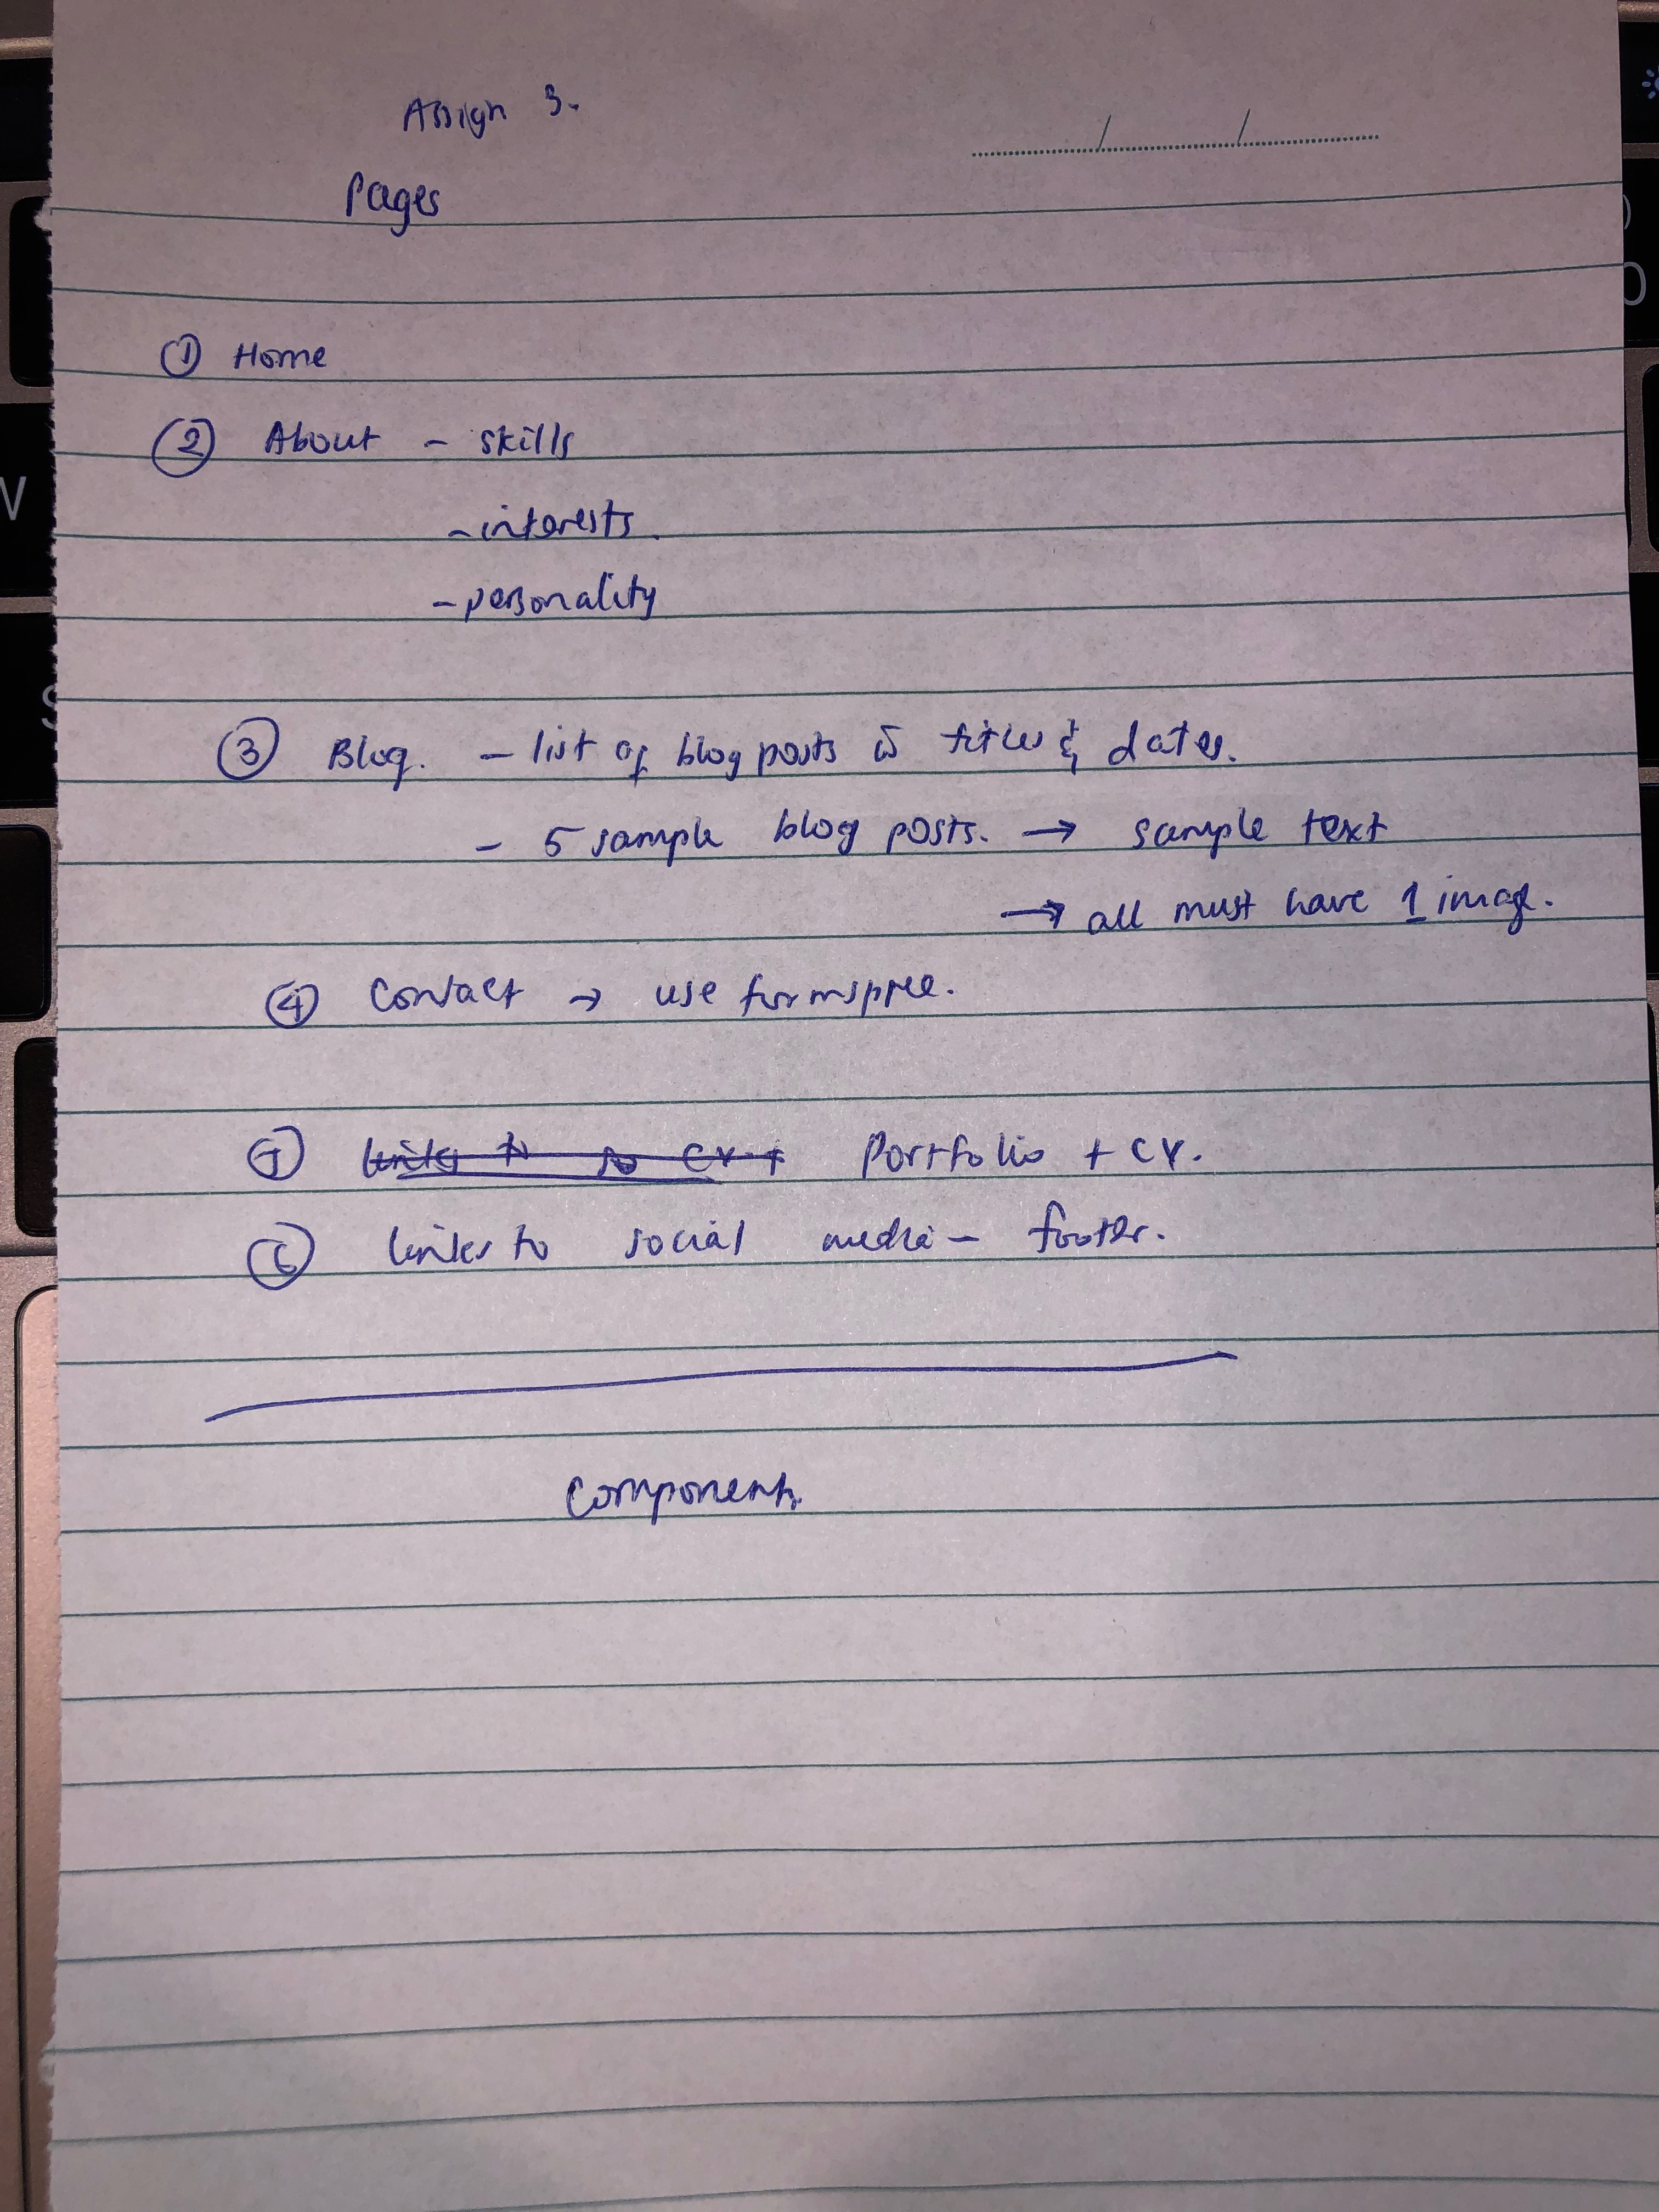 Assign 3.
Pages
① Home
② About - skills
- interests.
- personality
③ Blog. - list of blog posts w̄ titles & dates.
- 5 sample blog posts. → sample text
→ all must have 1 image.
④ Contact → use formspree.
⑤ Portfolio + CV.
⑥ links to social media - footer.
Components
W
S
O